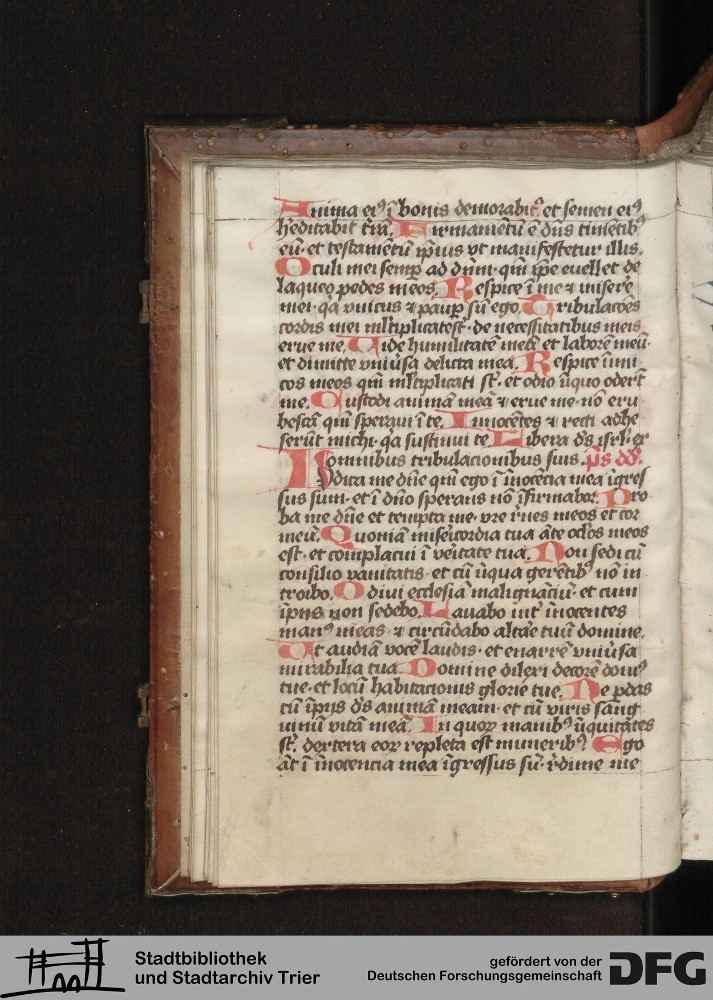 Anima eiꝰ ī bonis demorabit᷑ et semen eiꝰ
h̓editabit t̓rā. Firmamētū ē dn̄s timētibꝫ
eū· et testamētū ip̄ius vt manifestetur illis.
Oculi mei semꝑ ad dn̄m· qm̄ ip̄e euellet de
laqueo pedes meos. Respice ī me ⁊ miserē
mei· q̄a vnicus ⁊ paup̄ sū ego. Tribulacōes
cordis mei ml̓tiplicate sт̄· de necessitatibus meis
erue me. Uide humilitatē meā et laborē meū·
et dimitte vniu̓sa delicta mea. Respice inimi
cos meos qm̄ ml̓tiplicati st̄· et odio iniquo oder̄t
me. Custodi animā meā ⁊ erue me· nō eru
bescā qm̄ speraui ī te. Innocētes ⁊ recti adhe
serūt michi· q̄a sustinui te. Libera ds̄ isrl̄· ex
omnibus tribulacionibus suis. p̄s dd̄.
Iudica me dn̄e qm̄ ego ī inocētia mea īgres
sus sum· et ī dn̄o sperans nō īfirmabor. Pro
ba me dn̄e et tempta me· vre r̄nes meos et cor
meū. Quoniā miseicordia tua āte oclōs meos
est· et complacui ī ve̓itate tua. Non sedi cū
consilio vanitatis· et cū iniqua gerētibꝫ nō in
troibo. Odiui ecclesiā malignāciū· et cum
īpijs non sedebo. Lauabo int̓ inocentes
manꝰ meas· ⁊ circūdabo altāe tuū domine.
Ut audiā vocē laudis· et enarrē vniu̓sa
mirabilia tua. Domine dilexi decorē domꝰ
tue· et locū habitacionis glorie tue. Ne ꝑdas
cū īpijs ds̄ animā meam· et cū viris sang
uinū vitā meā. In quoꝝ manibꝫ iniquitātes
st̄· dextera eoꝝ repleta est muneribꝫ Ego
āt ī inocencia mea īgressus sū· r̓dime me
Stadtbibliothek
und Stadtarchiv Trier
gefördert von der
Deutschen Forschungsgemeinschaft
DFG